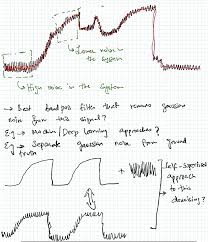 Lower noise in
the system
High noise in the System
→ Best bandpass filter that removes gaussian
noise from this signal?
Eg → Machine/Deep learning approaches?
Eg → Separate gaussian noise from ground
truth
Self-supervised
approach
to this
denoising?